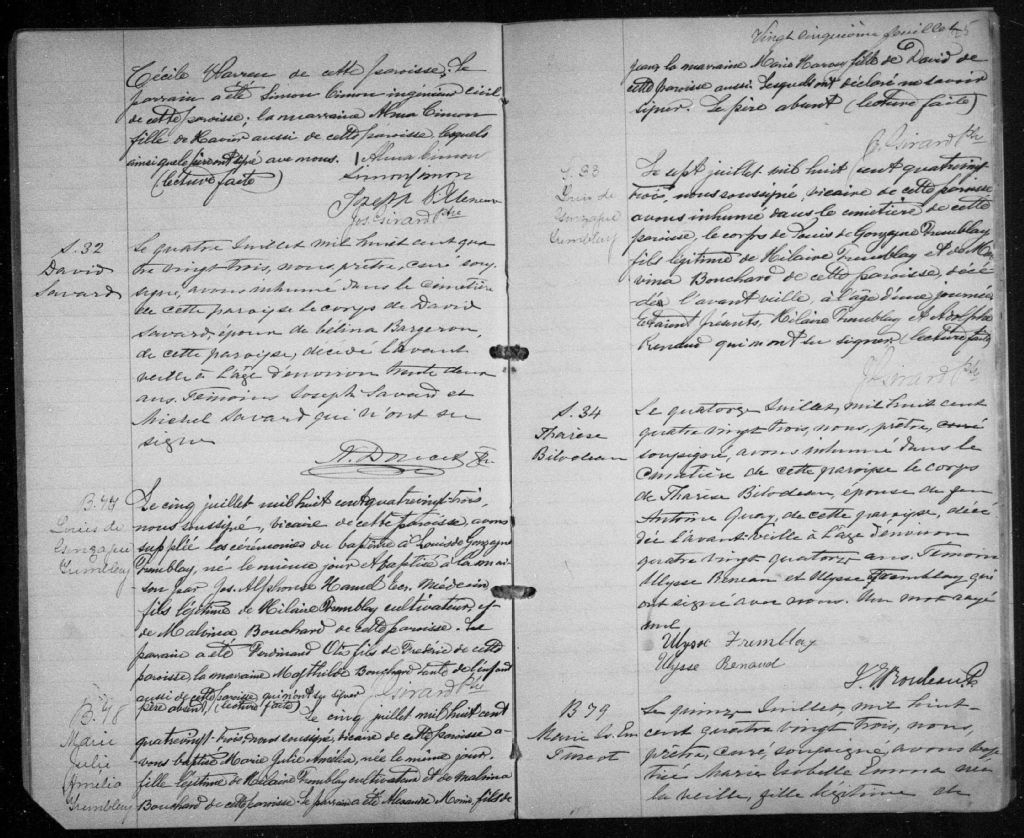 Cécile de cette paroisse. Le
parrain a été Simon Cimon ingénieur civil
de cette paroisse; la marraine Alma Cimon
fille de aussi de cette paroisse lesquels
ainsi que le père ont signé avec nous. Alma Cimon
(lecture faite) Simon Cimon
Joseph
Jos Girard Ptre
S. 32
David
Savard
Le quatre Juillet mil huit cent qua
tre vingt trois, nous, prêtre, curé sous
signé, avons inhumé dans le cimetière
de cette paroisse le corps de David
Savard, époux de Célina Bergeron,
de cette paroisse, décédé l'avant
veille à l'âge d'environ trente deux
ans. Témoins Joseph Savard et
Michel Savard qui n'ont su
signer
Ptre
B. 77
Louis de
Gonzague
Tremblay
Le cinq juillet mil huit cent quatrevingt-trois,
nous soussigné, vicaire de cette paroisse, avons
supplié les cérémonies du baptême à Louis de Gonzague
Tremblay, né le même jour et baptisé à la mai
son par Jos. Alphonse Hamel Ecr. Médecin
fils légitime de Hilaire Tremblay cultivateur, et
de Malvina Bouchard de cette paroisse. Le
parrain a été Ferdinand fils de de cette
paroisse, la marraine Mathilde Bouchard tante de l'enfant
aussi de cette paroisse qui n'ont su signer Girard Ptre
père absent, (lecture faite)
B. 78
Marie
Julie
Amélia
Tremblay
Le cinq juillet mil huit cent
quatrevingt-trois, nous soussigné, vicaire de cette paroisse a-
vons baptisé Marie Julie Amélia, née le même jour,
fille légitime de Hilaire Tremblay cultivateur et de Malvina
Bouchard de cette paroisse. Le parrain a été Alexandre fils de
Vingt cinquième feuillet 25
la marraine Marie fille de David de
cette paroisse aussi. Lesquels ont déclaré ne savoir
signer. Le père absent (lecture faite)
J. Girard Ptre
S. 33
Louis de
Gonzague
Tremblay
Le sept juillet mil huit cent quatrevingt
trois, nous soussigné, vicaire de cette paroisse
avons inhumé dans le cimetière de cette
paroisse, le corps de Louis de Gonzague Tremblay
fils légitime de Hilaire Tremblay et de Mal
vina Bouchard de cette paroisse, décé
dé l'avant veille, à l'âge d'une journée
Etaient présents, Hilaire Tremblay et Adolphe
Renaud qui n'ont su signer (lecture faite)
Jos Girard Ptre
S. 34
Tharèse
Bilodeau
Le quatorze Juillet, mil huit cent
quatre vingt trois, nous, prêtre, curé
soussigné, avons inhumé dans le
cimetière de cette paroisse le corps
de Tharèse Bilodeau, épouse de feu
Antoine Quay, de cette paroisse, décé
dée l'avant-veille à l'âge d'environ
quatre vingt quatorze ans. Témoins
Ulysse Reneau et Ulysse Tremblay qui
ont signé avec nous. Un mot rayé
nul
Ulysse Tremblay
Ulysse Renaud
Ptre
B 79
Marie Is. Em
Le quinze Juillet, mil huit
cent quatre vingt trois, nous,
prêtre, curé, soussigné, avons bap
tisé Marie Isabelle Emma née
la veille, fille légitime de